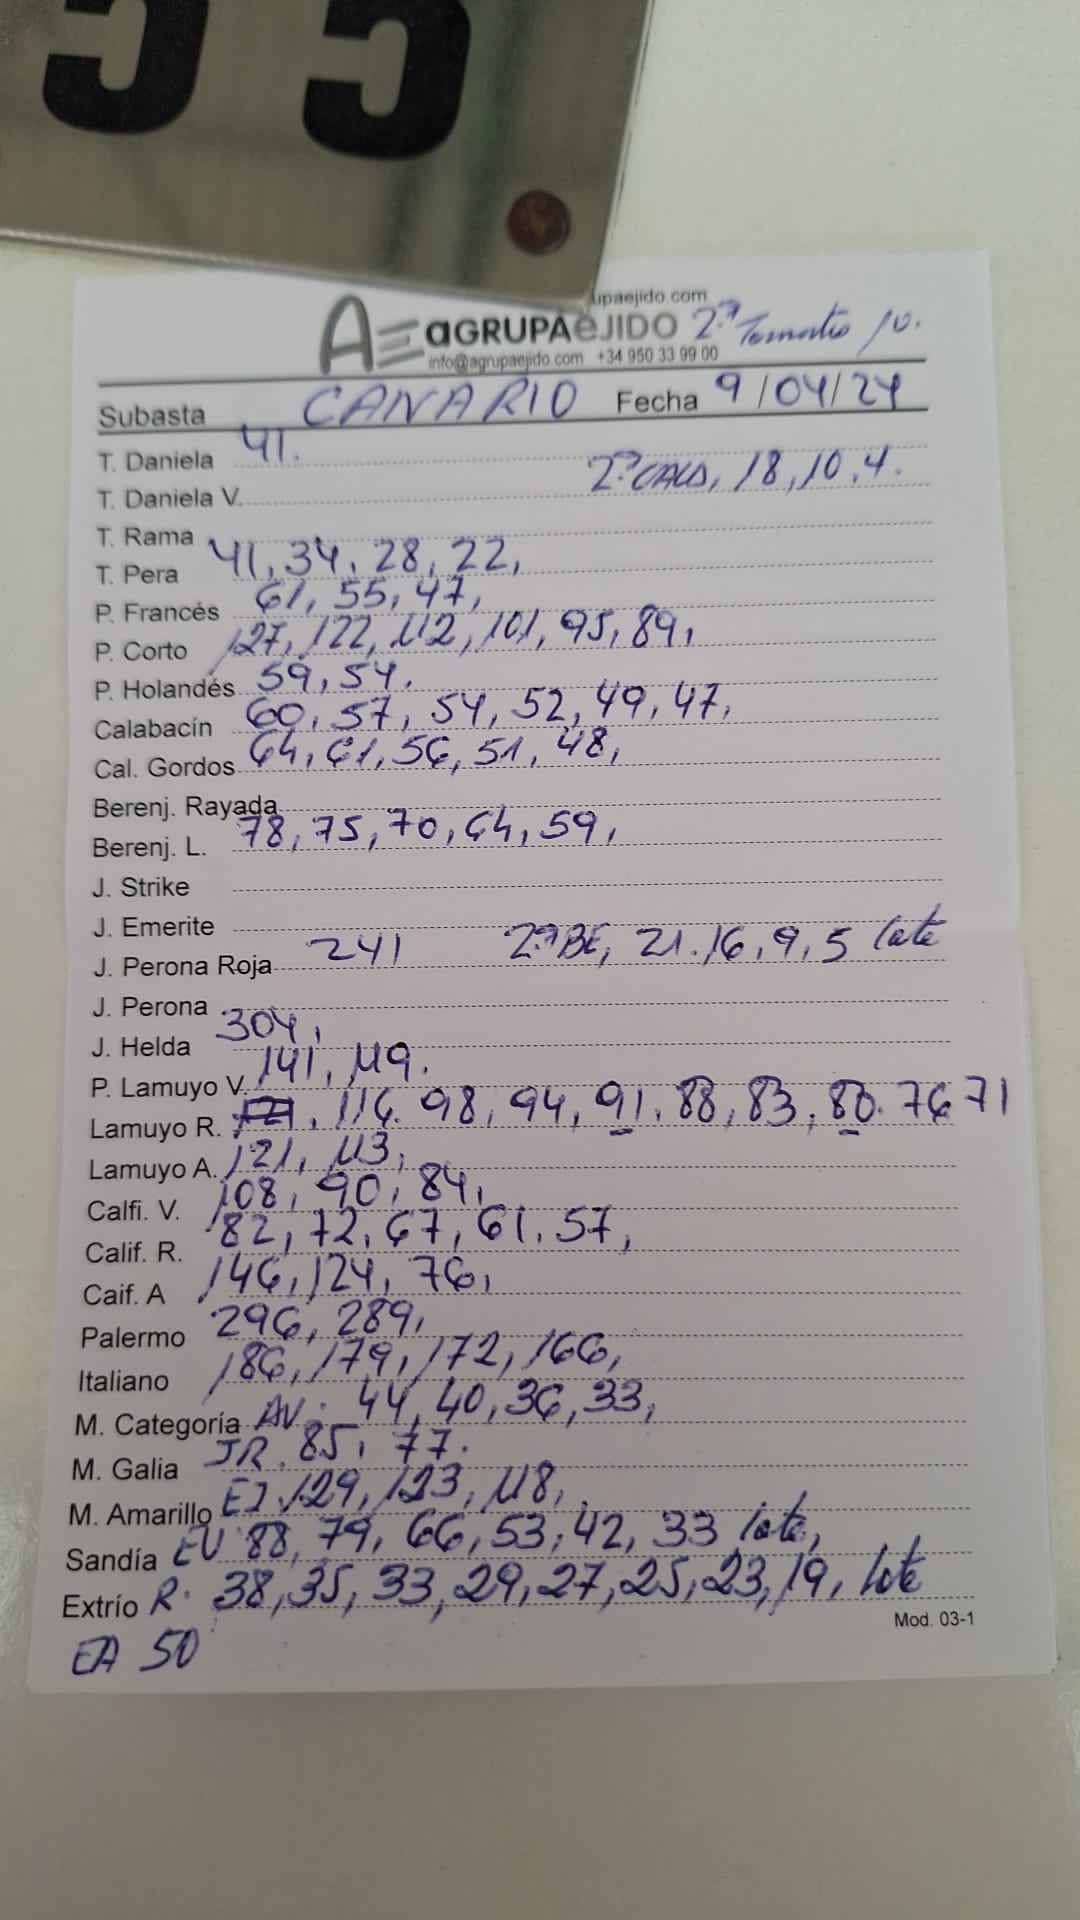 55
upaejido.com
AE aGRUPAeJIDO 2ª Tomate 10.
info@agrupaejido.com +34 950 33 99 00
Subasta CANARIO Fecha 9/04/24
T. Daniela 41.
T. Daniela V. 2ª CALA, 18, 10, 4.
T. Rama
T. Pera 41, 34, 28, 22,
P. Francés 61, 55, 47,
P. Corto 127, 122, 112, 101, 95, 89,
P. Holandés 59, 54.
Calabacín 60, 57, 54, 52, 49, 47,
Cal. Gordos 64, 61, 56, 51, 48,
Berenj. Rayada
Berenj. L. 78, 75, 70, 64, 59,
J. Strike
J. Emerite
J. Perona Roja 241 2ª BE, 21. 16, 9, 5 late
J. Perona
J. Helda 304,
P. Lamuyo V. 141, 119.
Lamuyo R. , 116. 98, 94, 91, 88, 83, 80. 76 71
Lamuyo A. 121, 113,
Calfi. V. 108, 90, 84,
Calif. R. 82, 72, 67, 61, 57,
Caif. A 146, 124, 76,
Palermo 296, 289,
Italiano 186, 179, 172, 166,
M. Categoría AV. 44, 40, 36, 33,
M. Galia JR. 85, 77.
M. Amarillo EJ. 129, 123, 118,
Sandía EV 88, 79, 66, 53, 42, 33 late,
Extrío R. 38, 35, 33, 29, 27, 25, 23, 19, lote
Mod. 03-1
EA 50